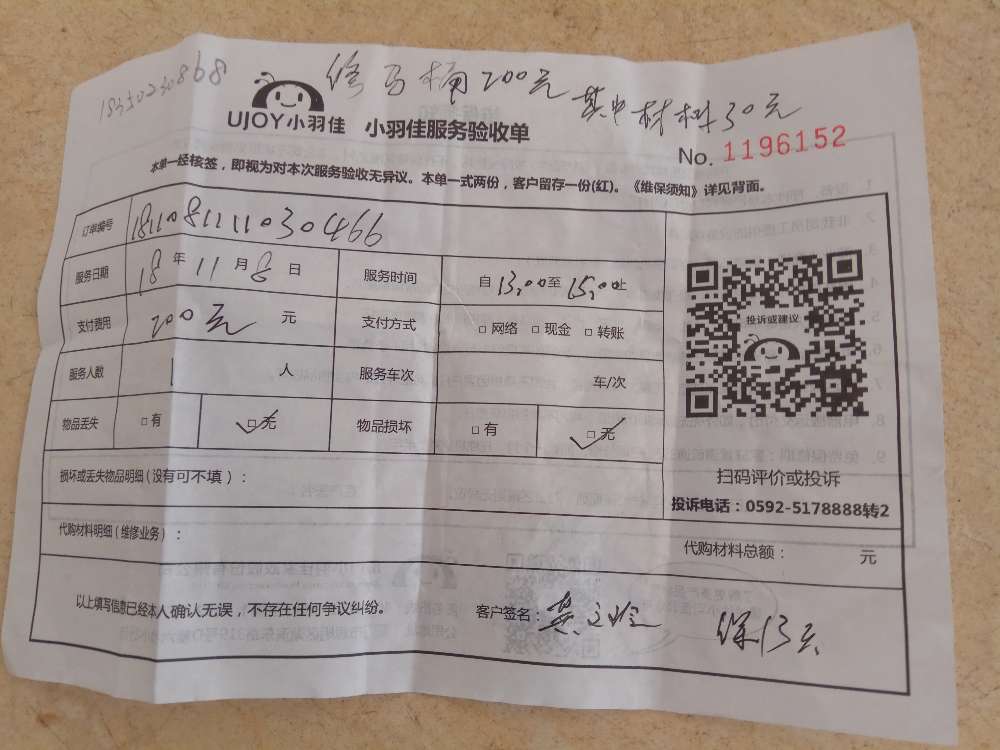 修马桶200元 其中材料30元
UJOY小羽佳 小羽佳服务验收单
No. 1196152
本单一经核签，即视为对本次服务验收无异议。本单一式两份，客户留存一份(红)。《维保须知》详见背面。
订单编号 181108111030466
服务日期 18 年 11 月 8 日 服务时间 自 13:00 至 15:00 止
支付费用 200元 元 支付方式 □ 网络 □ 现金 □ 转账
服务人数 1 人 服务车次 车/次
物品丢失 □ 有 □ 无 物品损坏 □ 有 □ 无
投诉或建议
扫码评价或投诉
投诉电话：0592-5178888转2
损坏或丢失物品明细(没有可不填)：
代购材料明细(维修业务)： 代购材料总额： 元
以上填写信息已经本人确认无误，不存在任何争议纠纷。 客户签名：